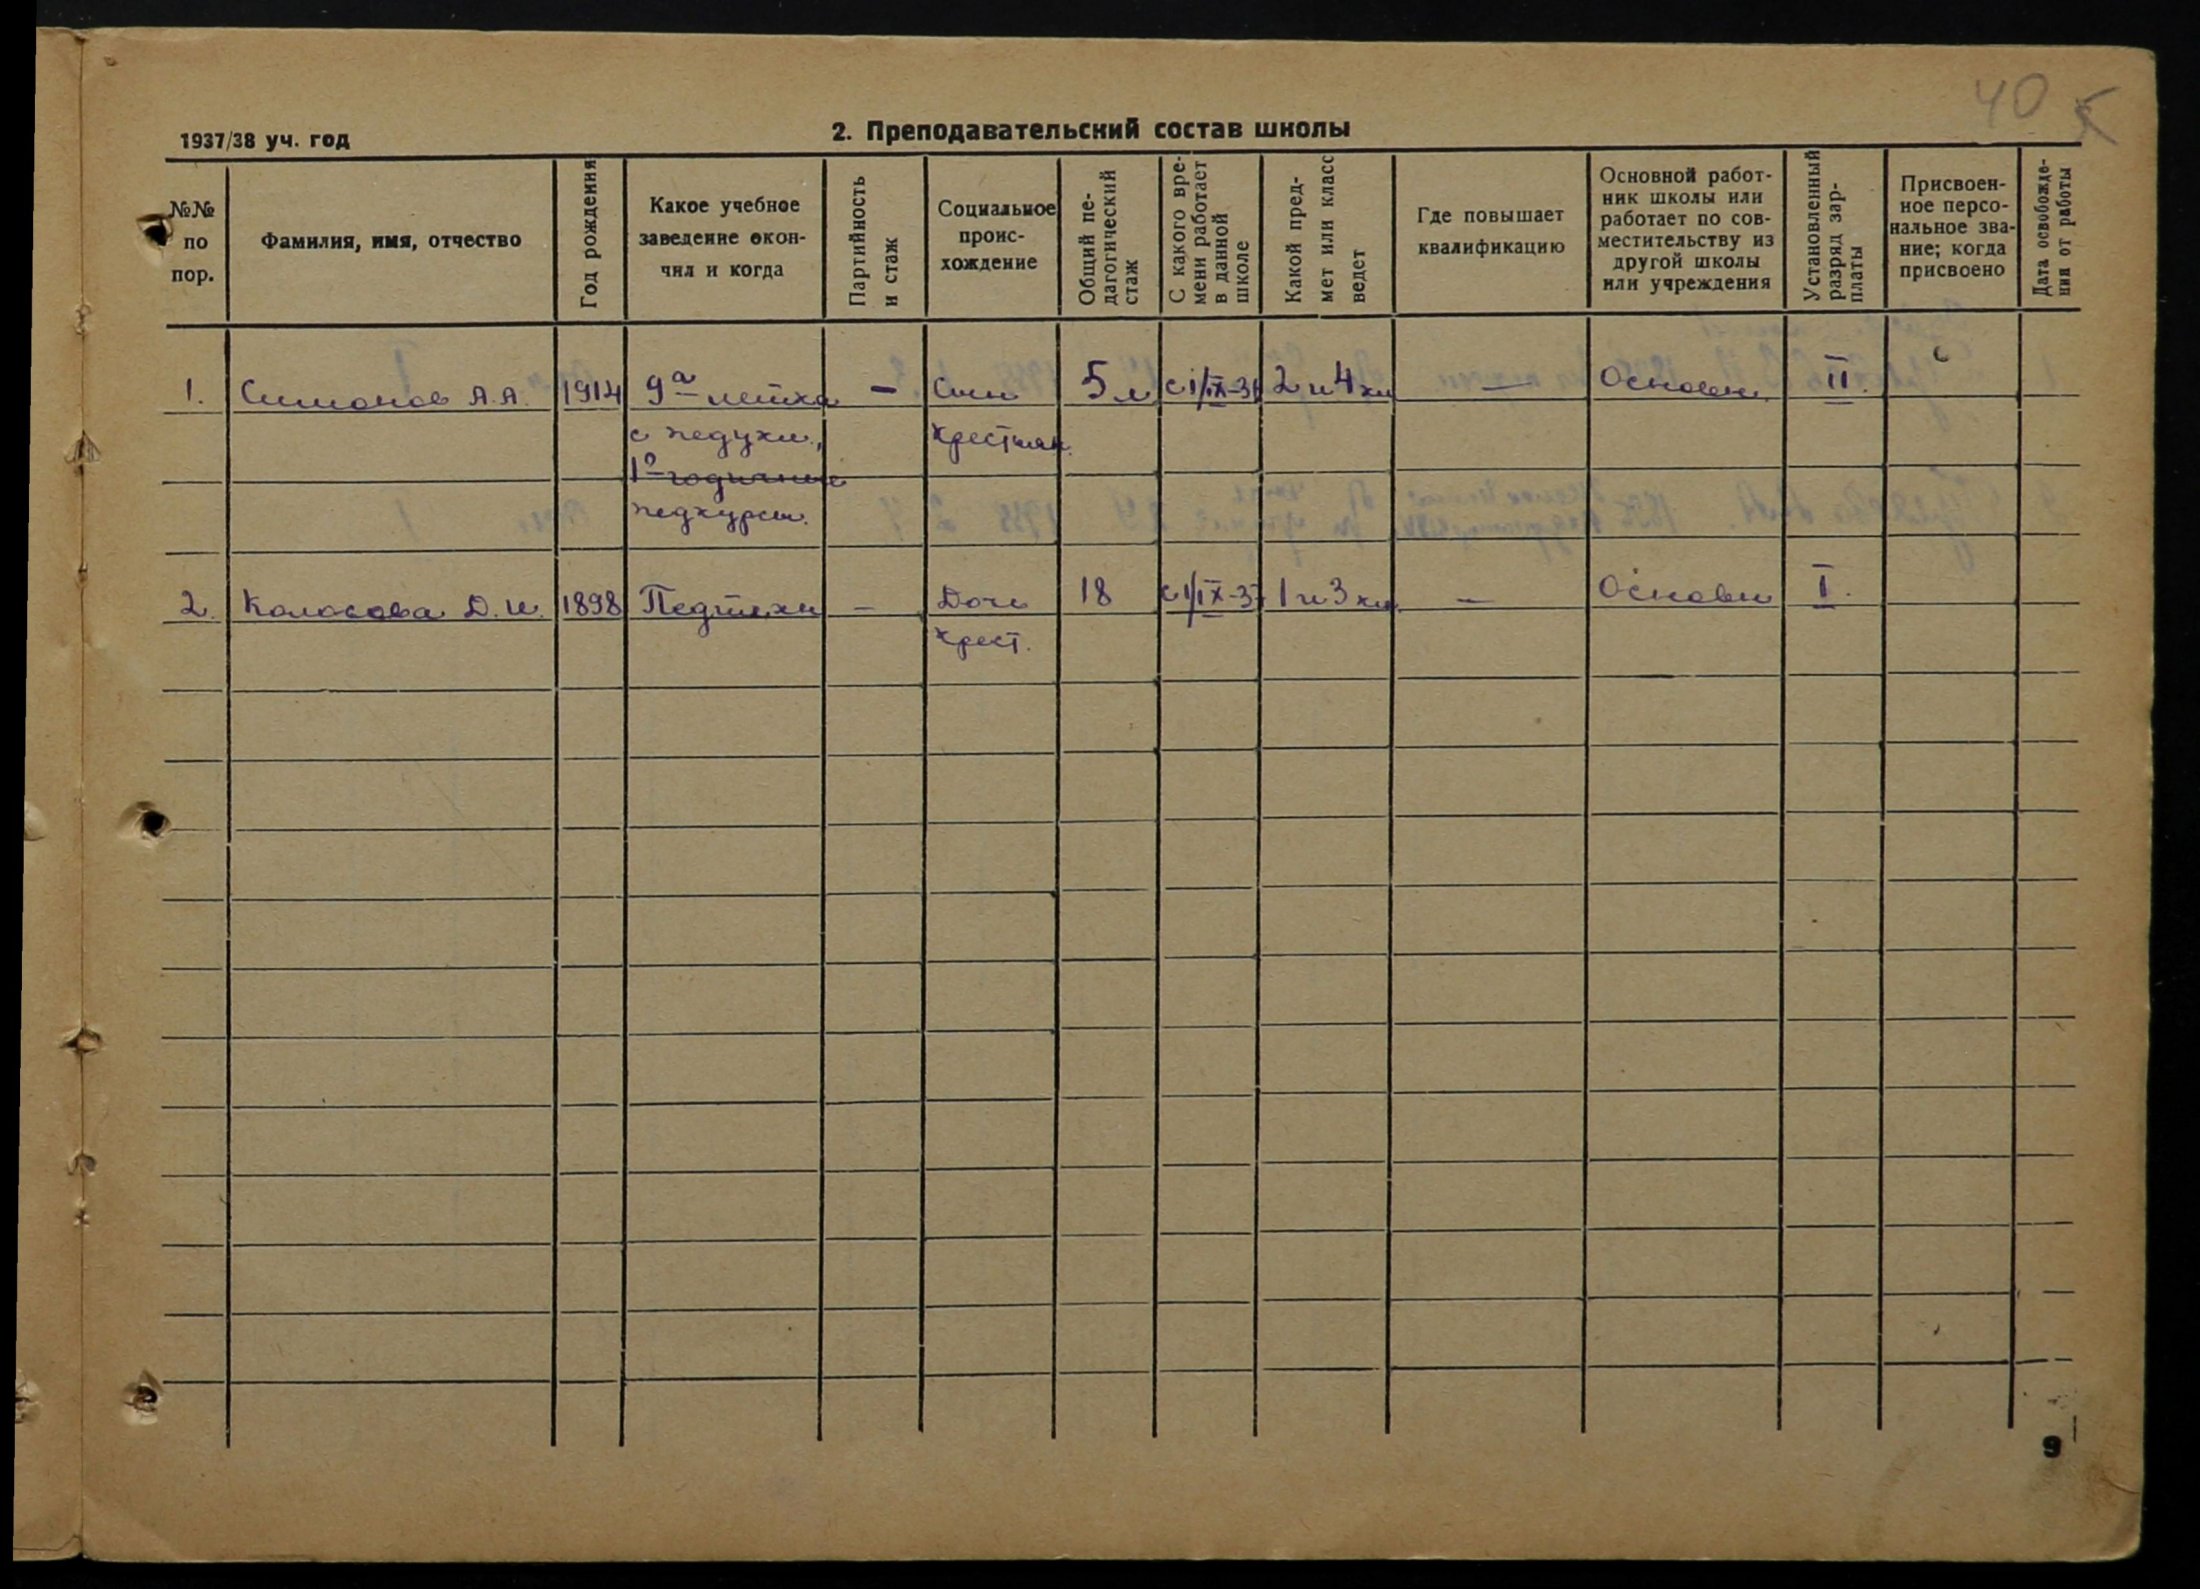 40
1937/38 уч. год
2. Преподавательский состав школы
№№ по пор.
Фамилия, имя, отчество
Год рождения
Какое учебное заведение окончил и когда
Партийность и стаж
Социальное происхождение
Общий педагогический стаж
С какого времени работает в данной школе
Какой предмет или класс ведет
Где повышает квалификацию
Основной работник школы или работает по совместительству из другой школы или учреждения
Установленный разряд зарплаты
Присвоенное персональное звание; когда присвоено
Дата освобождения от работы
1. Симонов А.А. 1914 9а летка — Сын 5 л с 1/IX-36 2 и 4 кл — Основн. II.
с педукл., крестьян.
1о годичные
педкурсы.
2. Колосова Д.И. 1898 Педтехн — Дочь 18 с 1/IX-37 1 и 3 кл. — Основн I.
крест.
9